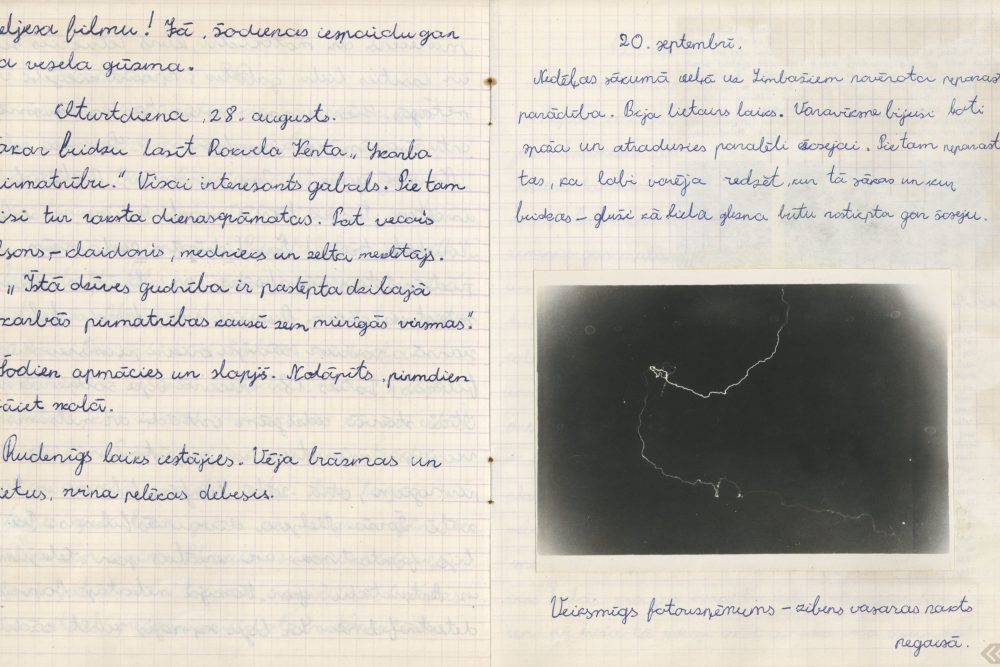 eljesa filmu! Jā, šodienas iespaidu gan
a vesela gūzma.
Ceturtdiena, 28. augusts.
ākar beidzu lasīt Rokvela Kenta „Skarba
irmatrību." Visai interesants gabals. Pie tam
isi tur raksta dienasgrāmatas. Pat vecais
lsons, – klaidonis, mednieks un zelta meklētājs.
„Īstā dzīves gudrība ir paslēpta dzīkajā
karbās pirmatnības kausā zem mierīgās virsmas".
Šodien apmācies un slapjš. Nolāpīts, pirmdien
jāiet skolā.
Rudenīgs laiks iestājies. Vēja brāzmas un
lietus, svina pelēkas debesis.
20. septembrī.
Nedēļas sākumā ceļā uz Limbažiem novērota neparast
parādība. Bija lietains laiks. Varavīksne bijusi ļoti
spoža un atradusies paralēli šosejai. Pie tam neparast
tas, ka labi varēja redzēt, kur tā sākas un kur
beidzas – gluši kā liela glezna būtu izstiepta gar šoseju.
Veiksmīgs fotouzņēmums – zibens vasaras nakts
negaisā.